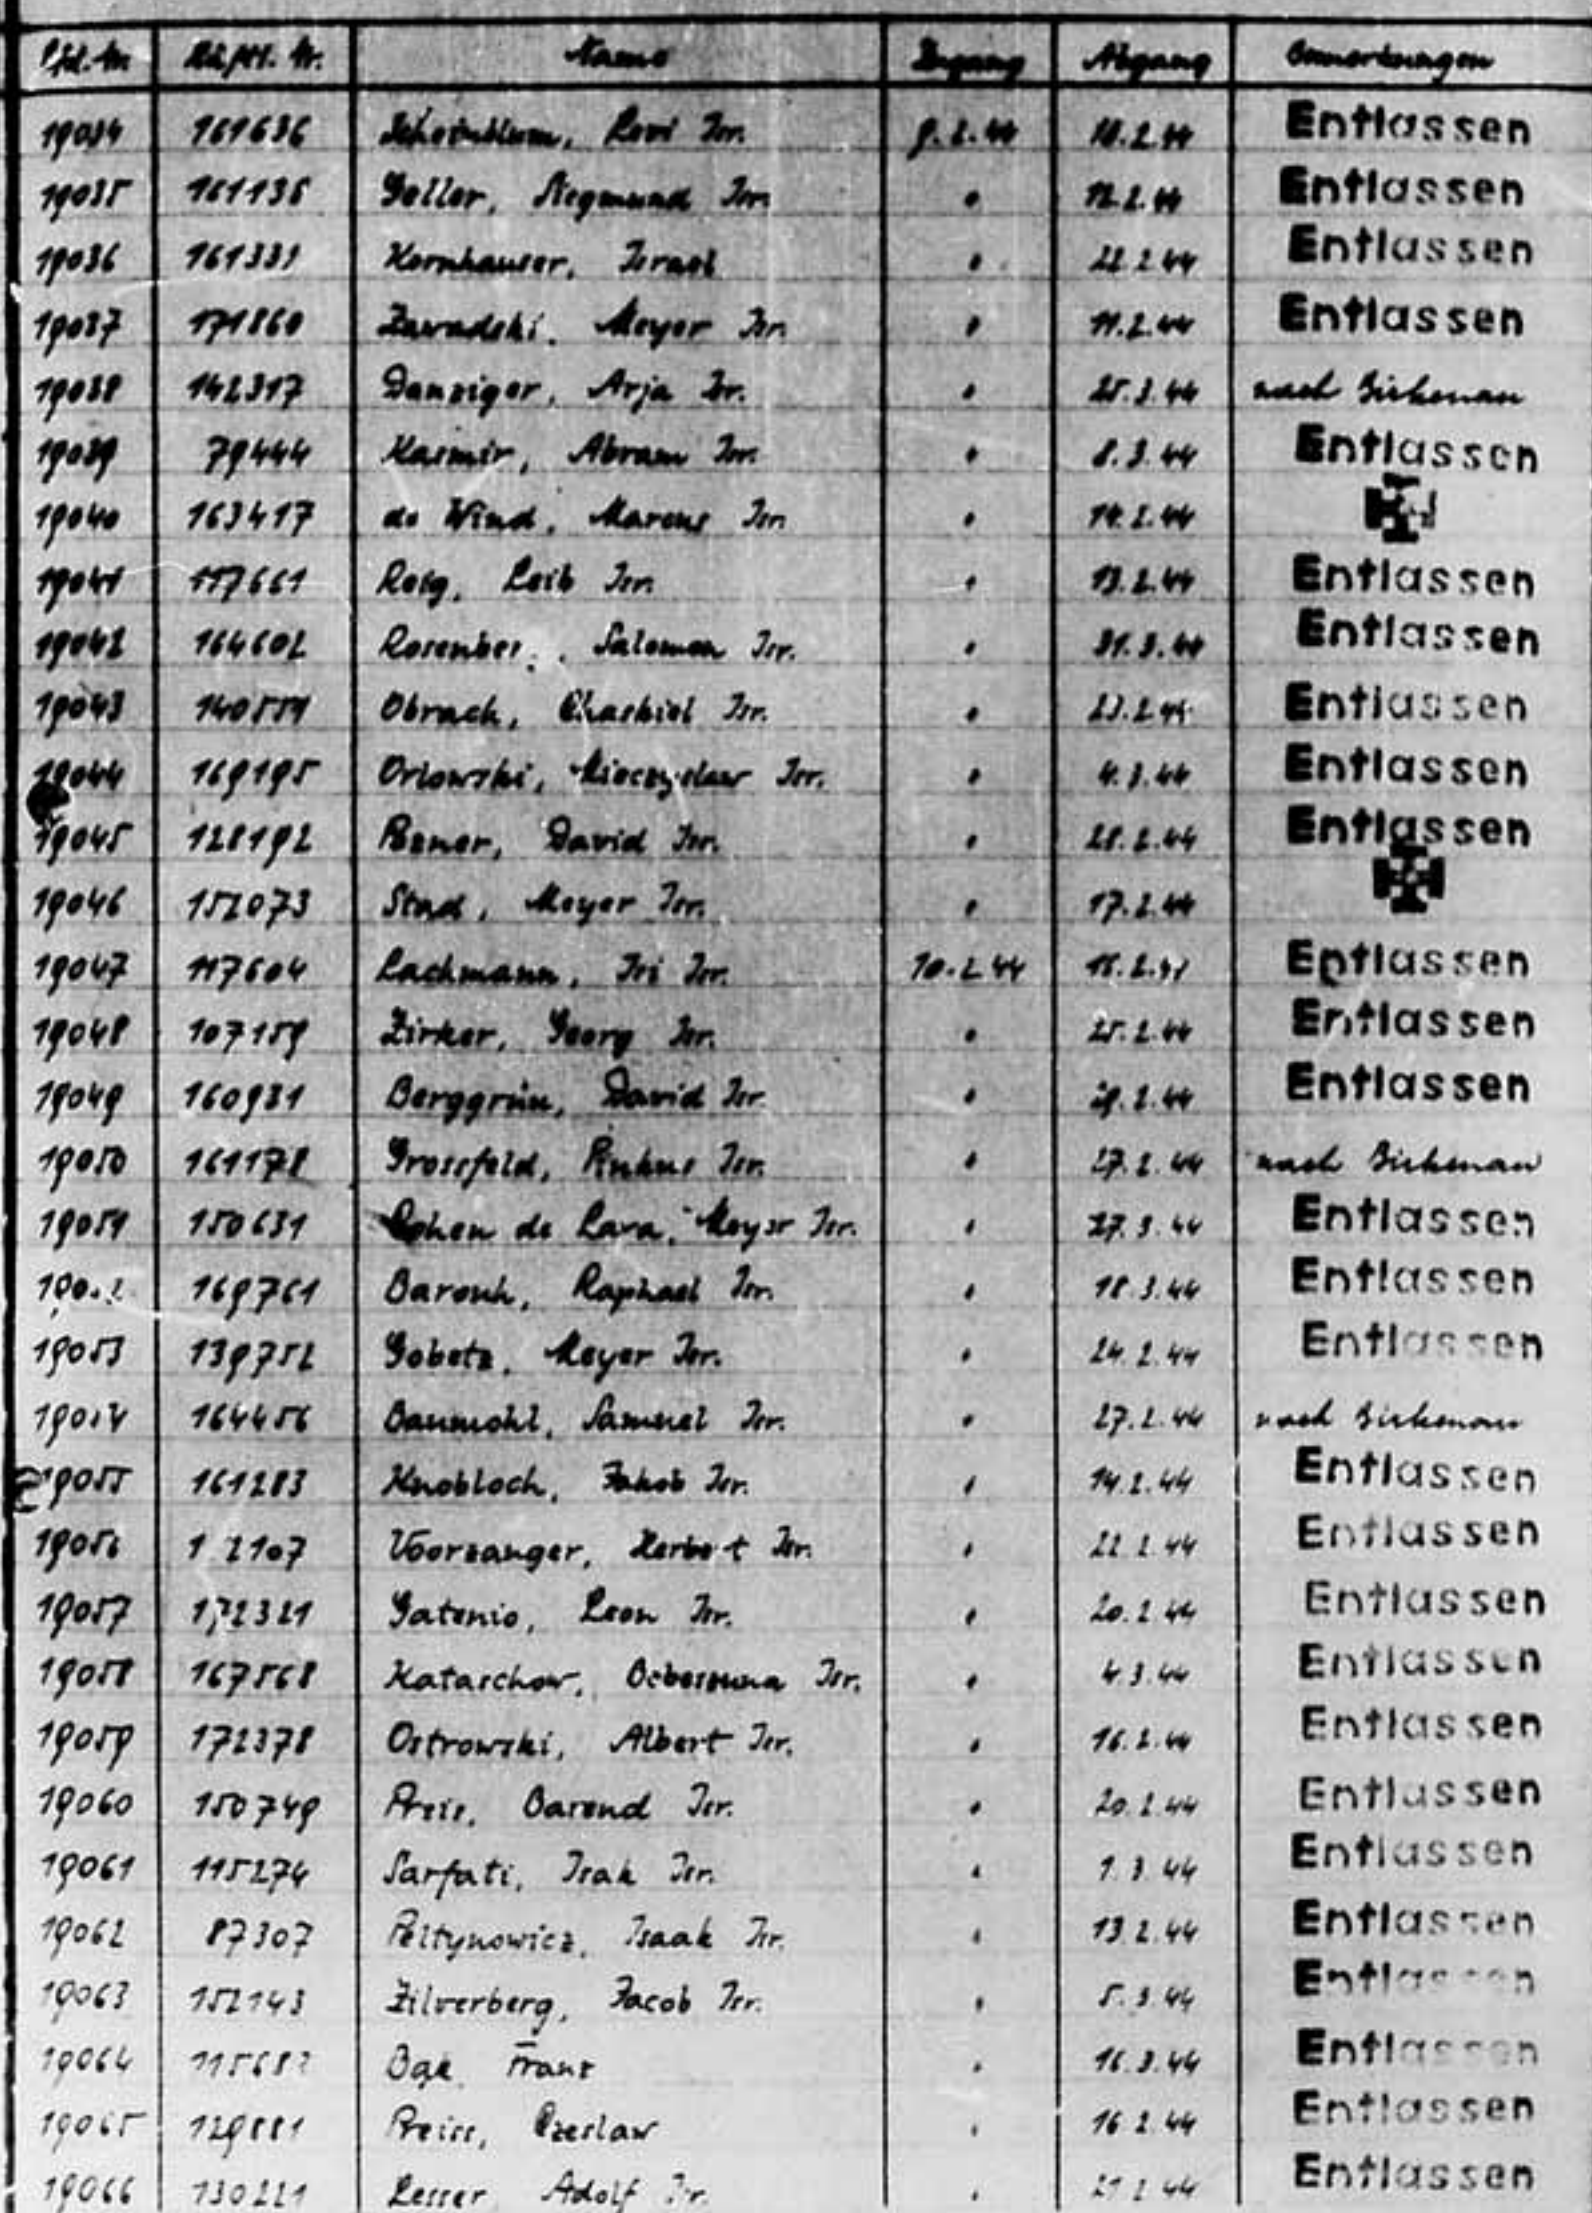 Lfd. Nr. Häftl. Nr. Name Zugang Abgang Bemerkungen
19034 161636 Levi Isr. 9.2.44 Entlassen
19035 161136 Geller, Siegmund Isr. " 12.2.44 Entlassen
19036 161331 Kornhauser, Israel " 22.2.44 Entlassen
19037 171860 Zawadski, Meyer Isr. " 11.2.44 Entlassen
19038 142317 Danziger, Arja Isr. " 25.3.44 nach Birkenau
19039 79444 Kasmir, Abram Isr. " 8.3.44 Entlassen
19040 163417 de Wind, Marcus Isr. " 14.2.44
19041 117661 Roig, Leib Isr. " 13.2.44 Entlassen
19042 164602 Salomon Isr. " 31.3.44 Entlassen
19043 140551 Obrach, Chaskiel Isr. " 23.2.44 Entlassen
19044 169195 Orlowski, Mieczyslaw Isr. " 4.3.44 Entlassen
19045 128192 Pozner, David Isr. " 28.2.44 Entlassen
19046 152073 Stad, Meyer Isr. " 17.2.44
19047 117604 Lachmann, Iri Isr. 10.2.44 Entlassen
19048 107159 Zirker, Georg Isr. " 25.2.44 Entlassen
19049 160931 Berggrün, David Isr. " Entlassen
19050 161178 Grossfeld, Pinkus Isr. " 27.2.44 nach Birkenau
19051 150631 Cohen de Lara, Meyer Isr. " 27.3.44 Entlassen
169761 Barouh, Raphael Isr. " 18.3.44 Entlassen
19053 139752 Gobetz, Meyer Isr. " 24.2.44 Entlassen
19054 164456 Baumohl, Samuel Isr. " 27.2.44 nach Birkenau
19055 161283 Knobloch, Jakob Isr. " 14.2.44 Entlassen
19056 Voorzanger, Herbert Isr. " 22.2.44 Entlassen
19057 172321 Gatenio, Leon Isr. " 20.2.44 Entlassen
19058 167568 Kataschow, Isr. " 4.3.44 Entlassen
19059 172378 Ostrowski, Albert Isr. " 16.2.44 Entlassen
19060 150749 Preis, Barend Isr. " 20.2.44 Entlassen
19061 115274 Sarfati, Isak Isr. " 1.3.44 Entlassen
19062 87307 Peltynowicz, Isaak Isr. " 13.2.44 Entlassen
19063 152143 Zilverberg, Jacob Isr. " 5.3.44 Entlassen
19064 Franz " 16.3.44 Entlassen
19065 129881 Preiss, Czeslaw " 16.2.44 Entlassen
19066 130221 Lesser Adolf Isr. " 21.2.44 Entlassen